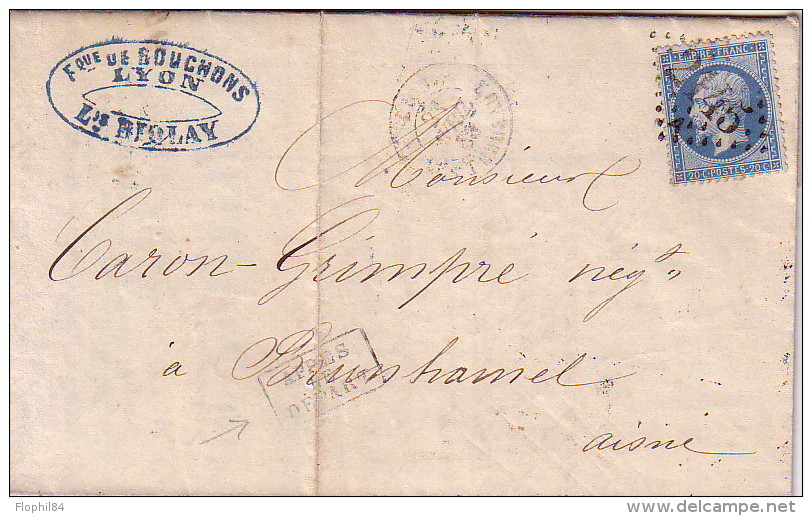 Fque DE BOUCHONS
LYON
Ls BIOLAY
EMPIRE FRANC
20 C POSTES 20 C
Monsieur
Caron-Grimpré négt
à Brunehamel
APRÈS
LE
DÉPART
aisne
Flophil84
delcampe.net